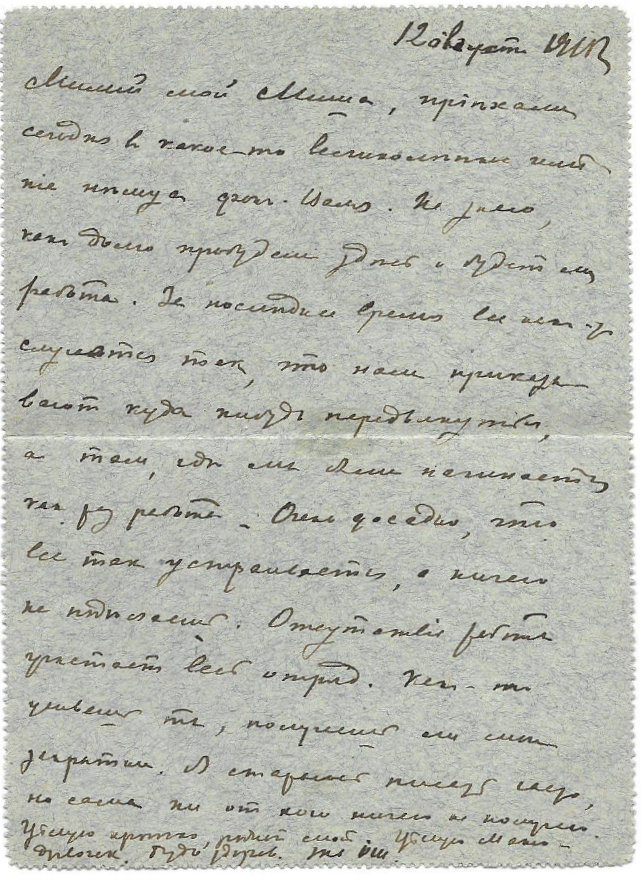 12 август 191
Милый мой Миша, приѣхали
сегодня в какое-то великолѣпное имѣ-
ніе нѣмца фон-. Не знаю,
как долго пробудем здѣсь и будет ли
работа. За послѣднее время все как-то
случается так, что нам приказы-
вают куда нибудь передвинуться,
а там, гдѣ мы были начинается
как раз работа. Очень досадно, что
все так устраивается, а ничего
не подѣлаешь. Отсутствіе работы
угнетает весь отряд. Как-то
живешь ты, получаешь ли мои
закрытки. Я стараюсь писать часто,
но сама ни от кого ничего не получаю.
Цѣлую крѣпко, родной мой. Цѣлую
Будь здоров.